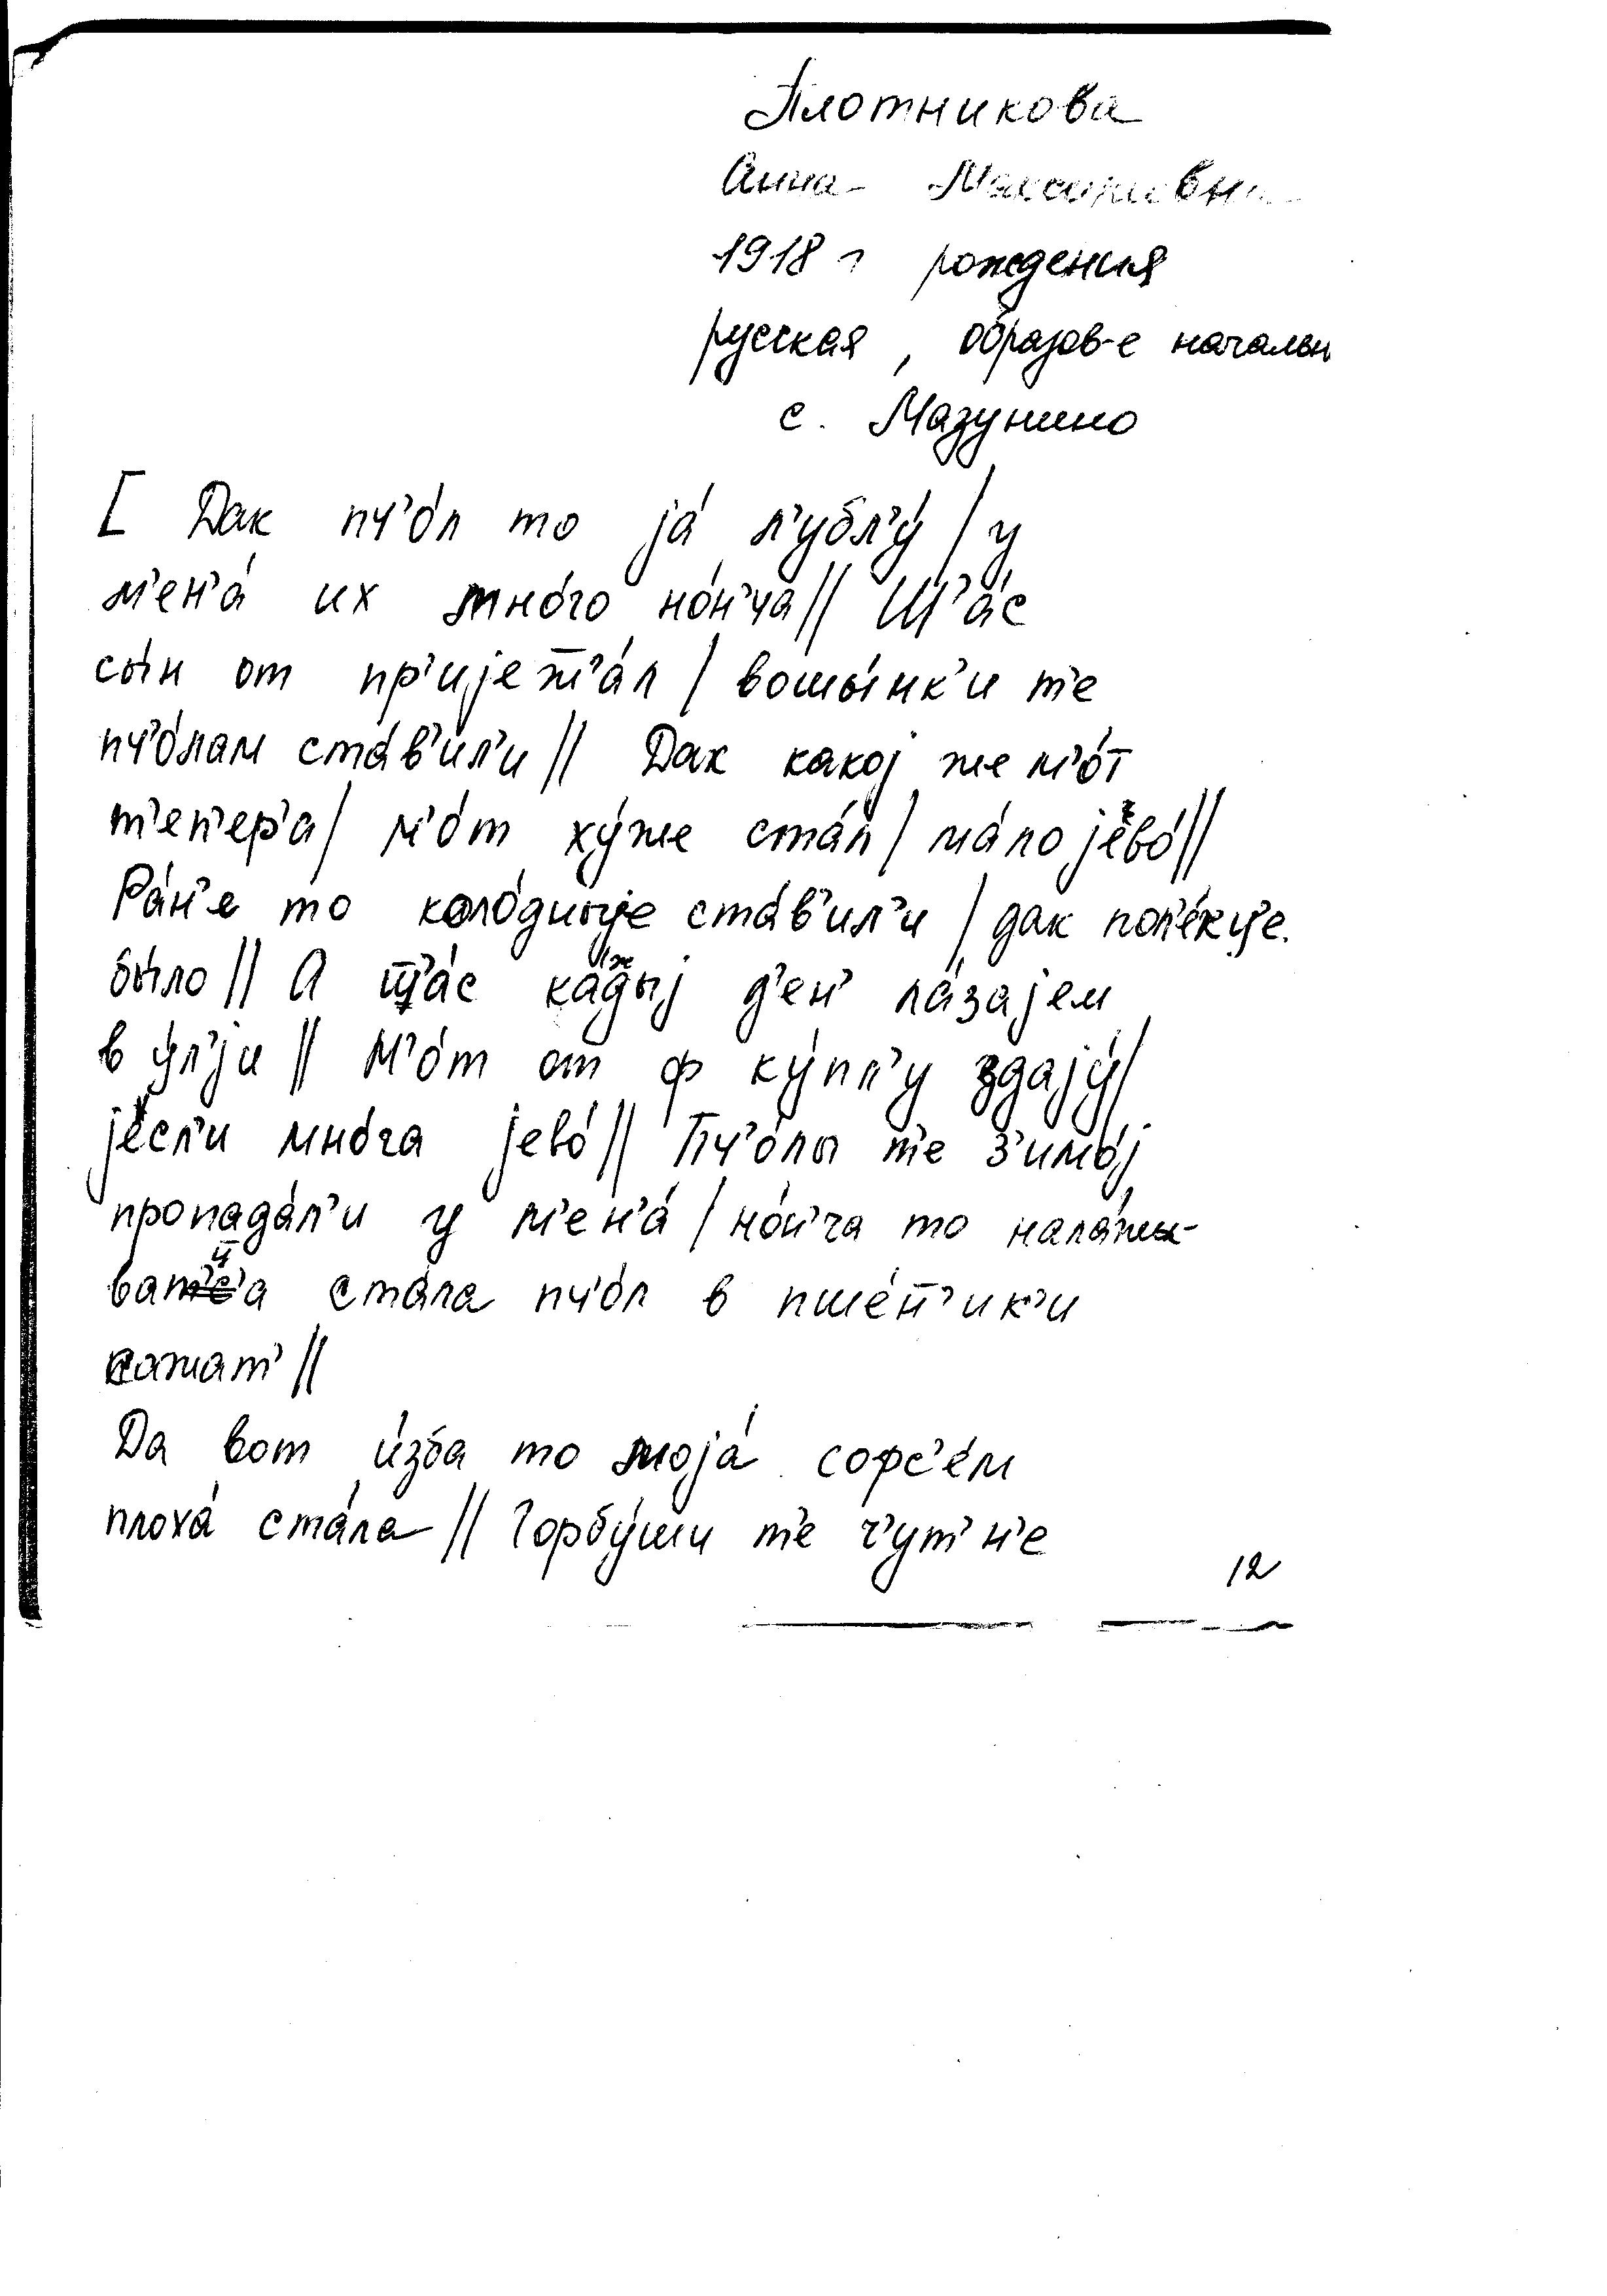 Плотникова
Анна Максимовна
1918 г рождения
русская, образов-е начальн
с. Мазунино
[ Дак пч'о́л то jа́ л'убл'у́ / у
м'ен'а́ их мно́го но́н'ча // Ш'а́с
сы́н от пр'иjеж'а́л / вошы́нк'и т'е
пч'о́лам ста́в'ил'и // Дак какоj же м'о́т
т'еп'ер'а / м'о́т ху́же ста́л / ма́ло jево́ //
Ра́н'е то коло́дныjе ста́в'ил'и / дак пол'е́кч'е
бы́ло // А ш'а́с ка́ждыj д'ен' ла́заjем
в у́л'jи // М'о́т от ф ку́пл'у здаjу́ /
jе́сл'и мно́га jево́ // Пч'о́лы т'е з'имо́j
пропада́л'и у м'ен'а́ / но́н'ча то нала́жы-
ваца ста́ла пч'о́л в пше́н'ик'и
сажат' //
Да вот и́зба то моjа́ софс'е́м
плоха́ ста́ла // Горбу́ши т'е ч'ут' н'е
12